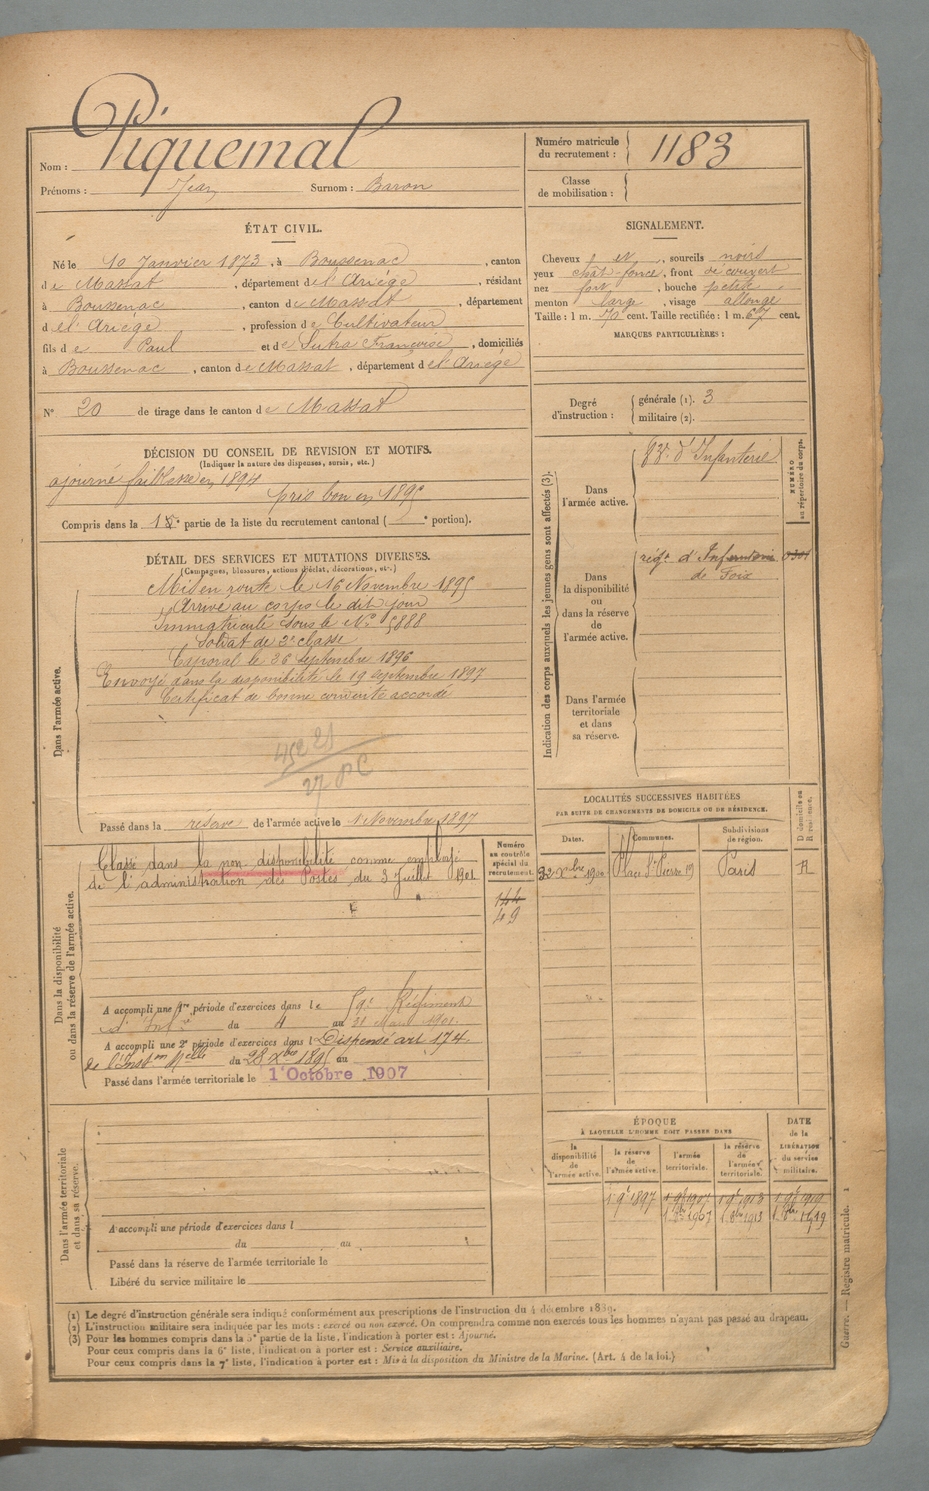 Nom : Piquemal
Prénoms : Jean Surnom : Baron
Numéro matricule du recrutement : 1183
Classe de mobilisation :
ÉTAT CIVIL.
Né le 10 Janvier 1873, à Boussenac, canton
de Massat, département de l'Ariège, résidant
à Boussenac, canton de Massat, département
de l'Ariège, profession de Cultivateur
fils de Paul et de Sutra Françoise, domiciliés
à Boussenac, canton de Massat, département de l'Ariège
N° 20 de tirage dans le canton de Massat
SIGNALEMENT.
Cheveux et, sourcils noirs
yeux chât-foncé, front découvert
nez fort, bouche petite
menton large, visage allongé
Taille : 1 m. 70 cent. Taille rectifiée : 1 m. 67 cent.
MARQUES PARTICULIÈRES :
Degré d'instruction : générale (1). 3
militaire (2).
DÉCISION DU CONSEIL DE REVISION ET MOTIFS.
(Indiquer la nature des dispenses, sursis, etc.)
ajourné faiblesse en 1894
pris bon en 1895
Compris dans la 1e partie de la liste du recrutement cantonal ( e portion).
DÉTAIL DES SERVICES ET MUTATIONS DIVERSES.
(Campagnes, blessures, actions d'éclat, décorations, etc.)
Dans l'armée active.
Mis en route le 16 Novembre 1895
Arrivé au corps le dit jour
Immatriculé sous le N° 5888
Soldat de 2e classe
Caporal le 26 septembre 1896
Envoyé dans la disponibilité le 19 septembre 1897
Certificat de bonne conduite accordé
Passé dans la réserve de l'armée active le 1 Novembre 1897
Indication des corps auxquels les jeunes gens sont affectés (3).
NUMÉRO au répertoire du corps.
Dans l'armée active.
83e d'Infanterie
Dans la disponibilité ou dans la réserve de l'armée active.
régt d'Infanterie
de Foix
Dans l'armée territoriale et dans sa réserve.
Dans la disponibilité ou dans la réserve de l'armée active.
Numéro au contrôle spécial du recrutement.
144
49
Classé dans la non disponibilité comme employé
de l'administration des Postes du 3 Juillet 1901
A accompli une 1re période d'exercices dans le 59e Régiment
d'Infie du 4 au 31 Mars 1901.
A accompli une 2e période d'exercices dans l Dispensé art 174.
de l'Inston Melle du 28 Xbre 1895 au
Passé dans l'armée territoriale le 1er Octobre 1907
LOCALITÉS SUCCESSIVES HABITÉES
PAR SUITE DE CHANGEMENTS DE DOMICILE OU DE RÉSIDENCE.
Dates. Communes. Subdivisions de région. D domicile ou R résidence.
Xbre 1900 Place St Pierre 19 Paris R
ÉPOQUE
À LAQUELLE L'HOMME DOIT PASSER DANS
la disponibilité de l'armée active. la réserve de l'armée active. l'armée territoriale. la réserve de l'armée territoriale.
DATE de la LIBÉRATION du service militaire.
1 9e 1897
Dans l'armée territoriale et dans sa réserve.
A accompli une période d'exercices dans l
du au
Passé dans la réserve de l'armée territoriale le
Libéré du service militaire le
(1) Le degré d'instruction générale sera indiqué conformément aux prescriptions de l'instruction du 4 décembre 1889.
(2) L'instruction militaire sera indiquée par les mots : exercé ou non exercé. On comprendra comme non exercés tous les hommes n'ayant pas passé au drapeau.
(3) Pour les hommes compris dans la 5e partie de la liste, l'indication à porter est : Ajourné.
Pour ceux compris dans la 6e liste, l'indication à porter est : Service auxiliaire.
Pour ceux compris dans la 7e liste, l'indication à porter est : Mis à la disposition du Ministre de la Marine. (Art. 4 de la loi.)
Guerre. — Registre matricule. 1